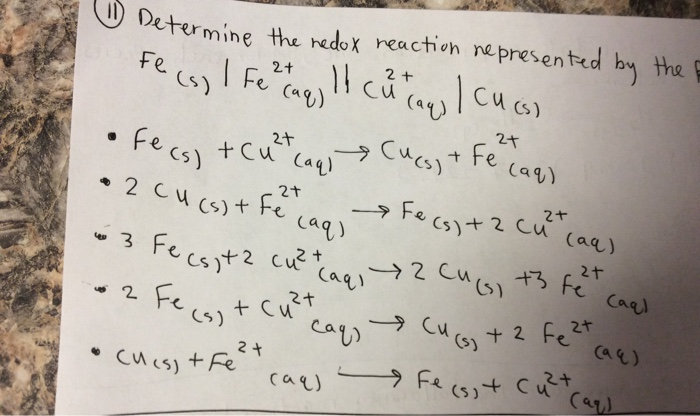 11) Determine the redox reaction represented by the
Fe (s) | Fe²⁺ (aq) || Cu²⁺ (aq) | Cu (s)
• Fe (s) + Cu²⁺ (aq) → Cu (s) + Fe²⁺ (aq)
• 2 Cu (s) + Fe²⁺ (aq) → Fe (s) + 2 Cu²⁺ (aq)
• 3 Fe (s) + 2 Cu²⁺ (aq) → 2 Cu (s) + 3 Fe²⁺ (aq)
• 2 Fe (s) + Cu²⁺ (aq) → Cu (s) + 2 Fe²⁺ (aq)
• Cu (s) + Fe²⁺ (aq) → Fe (s) + Cu²⁺ (aq)